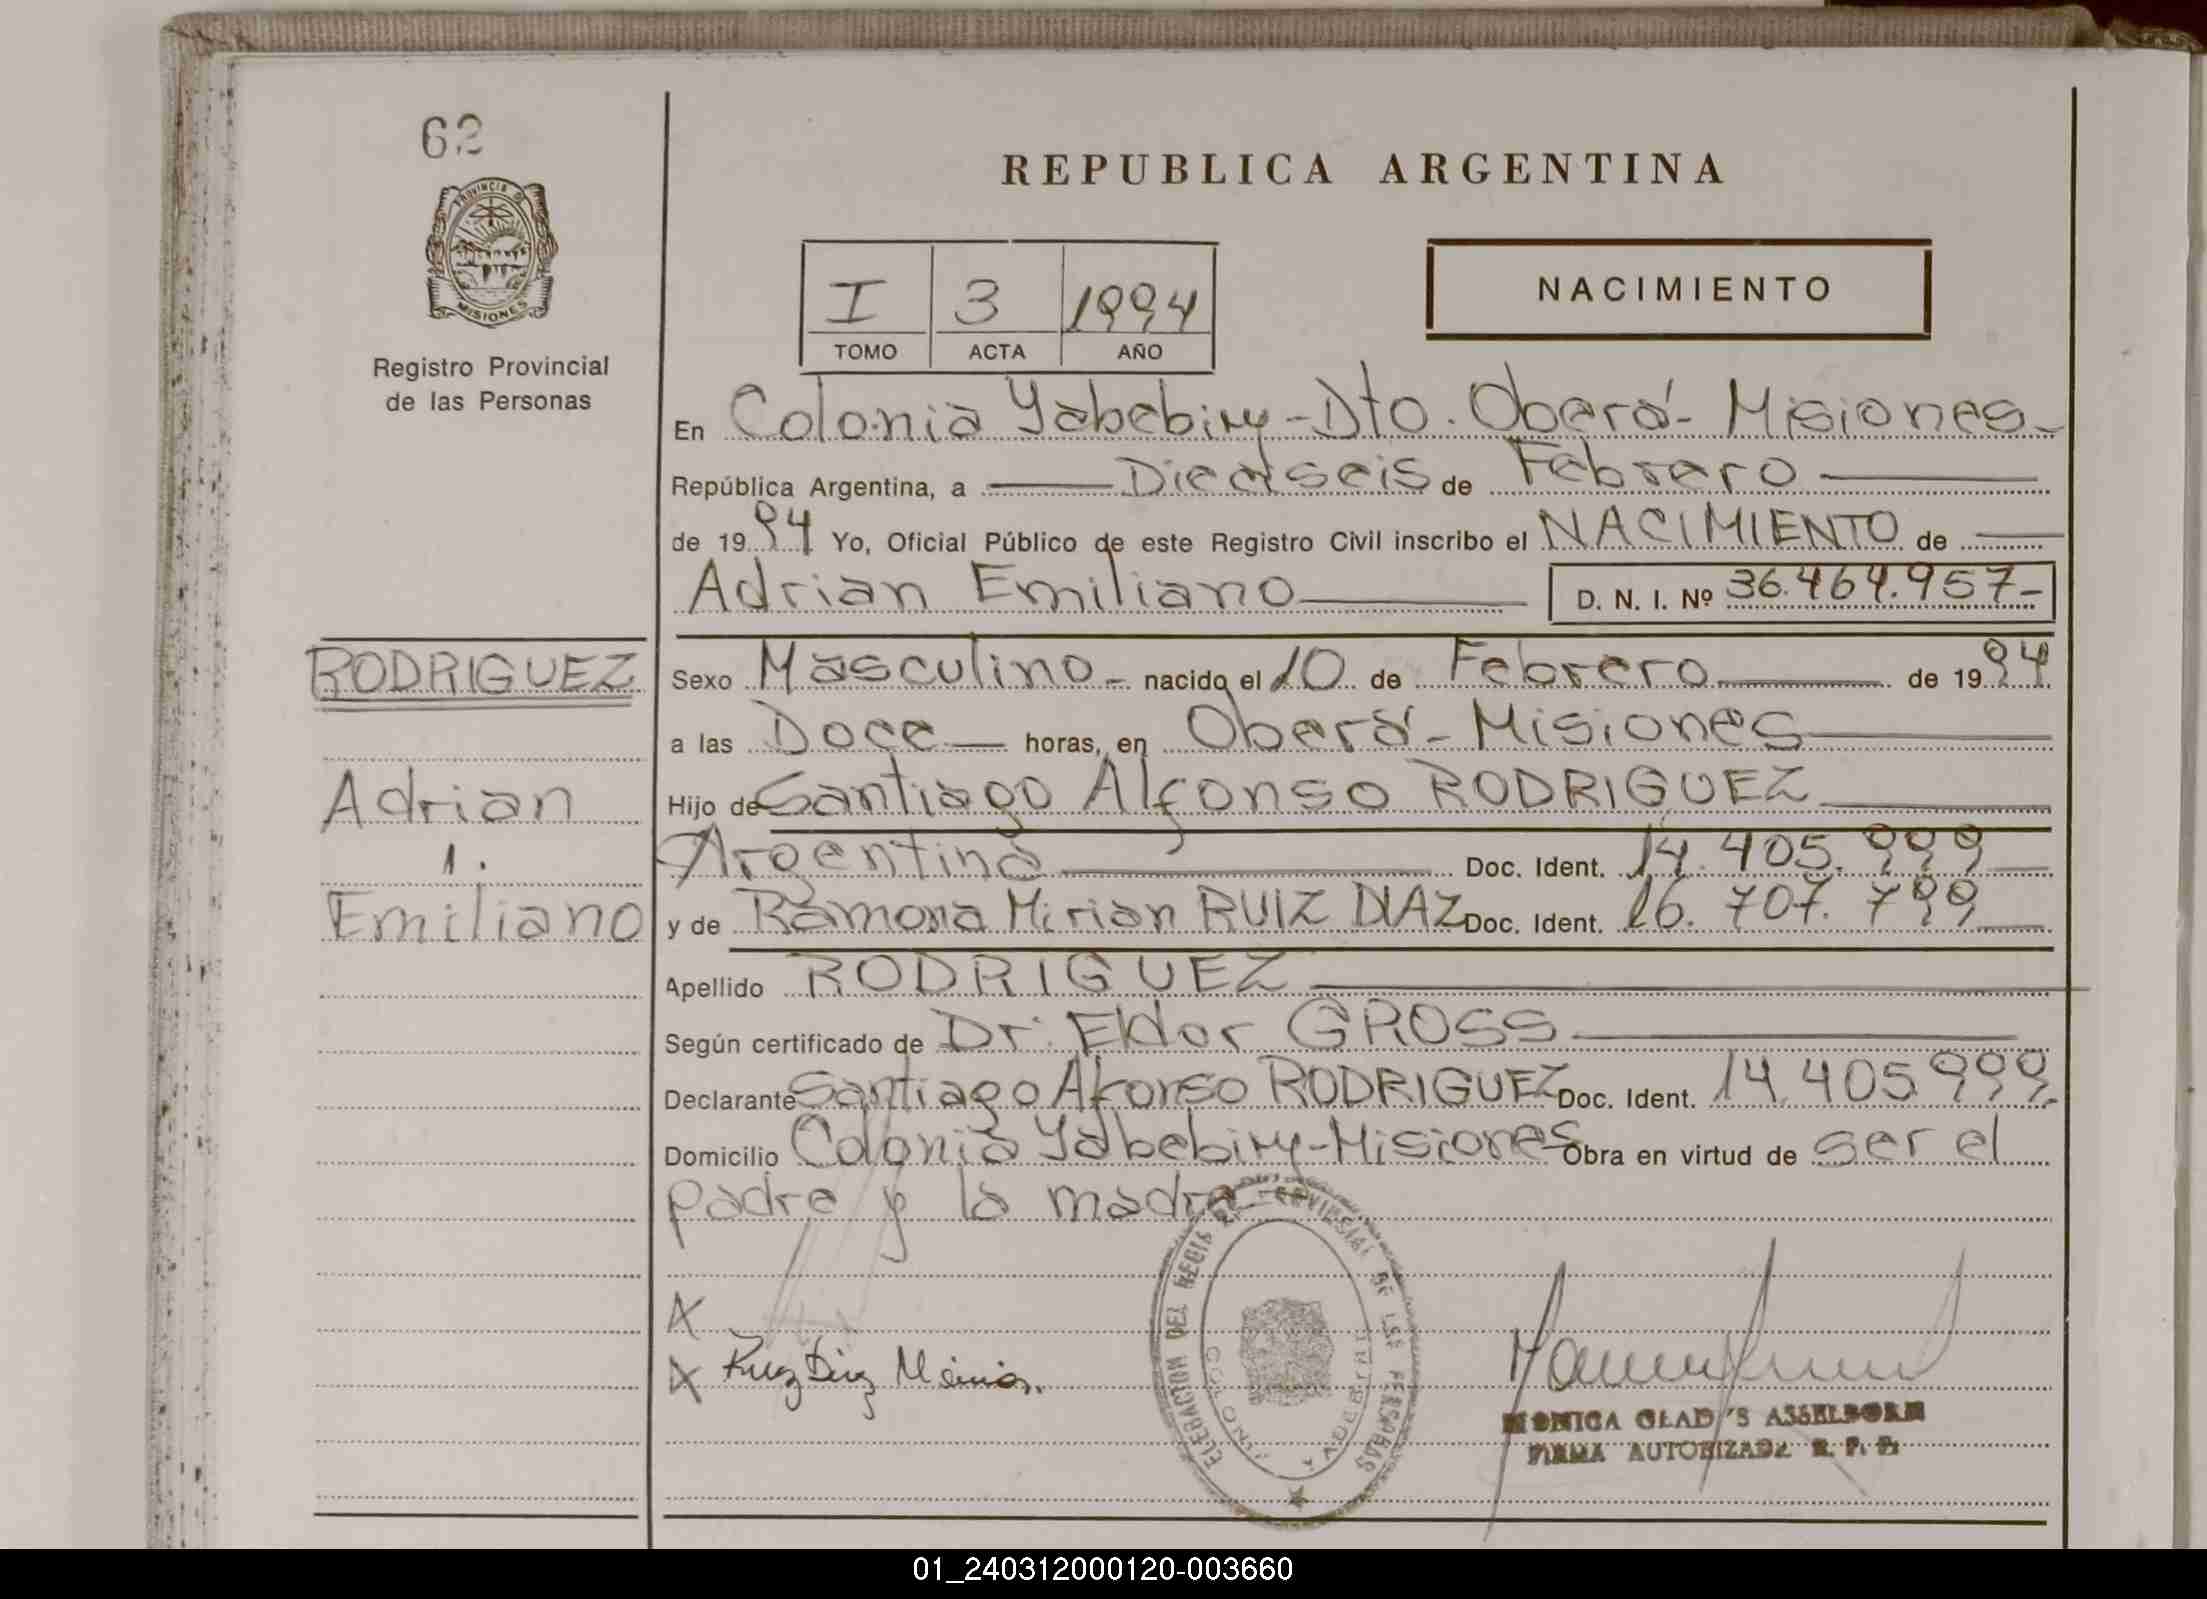 62
PROVINCIA DE
MISIONES
Registro Provincial
de las Personas
REPUBLICA ARGENTINA
I 3 1994
TOMO ACTA AÑO
NACIMIENTO
En Colonia Yabebiry-Dto. Oberá-Misiones-
República Argentina, a Dieciseis de Febrero
de 1994 Yo, Oficial Público de este Registro Civil inscribo el NACIMIENTO de
Adrian Emiliano D. N. I. Nº 36.464.957-
RODRIGUEZ
Adrian
1.
Emiliano
Sexo Masculino- nacido el 10 de Febrero de 1994
a las Doce horas, en Oberá-Misiones
Hijo de Santiago Alfonso RODRIGUEZ
Argentina Doc. Ident. 14.405.999
y de Ramona Mirian RUIZ DIAZ Doc. Ident. 16.707.799
Apellido RODRIGUEZ
Según certificado de Dr. Eldor GROSS
Declarante Santiago Alfonso RODRIGUEZ Doc. Ident. 14.405.999
Domicilio Colonia Yabebiry-Misiones Obra en virtud de ser el
padre y la madre
X
X Ruiz Diaz Mirian.
DEL REGISTRO PROVINCIAL DE LAS PERSONAS
COLONIA YABEBIRI
MONICA GLADYS ASSELBORN
FIRMA AUTORIZADA R. P. P.
01_240312000120-003660